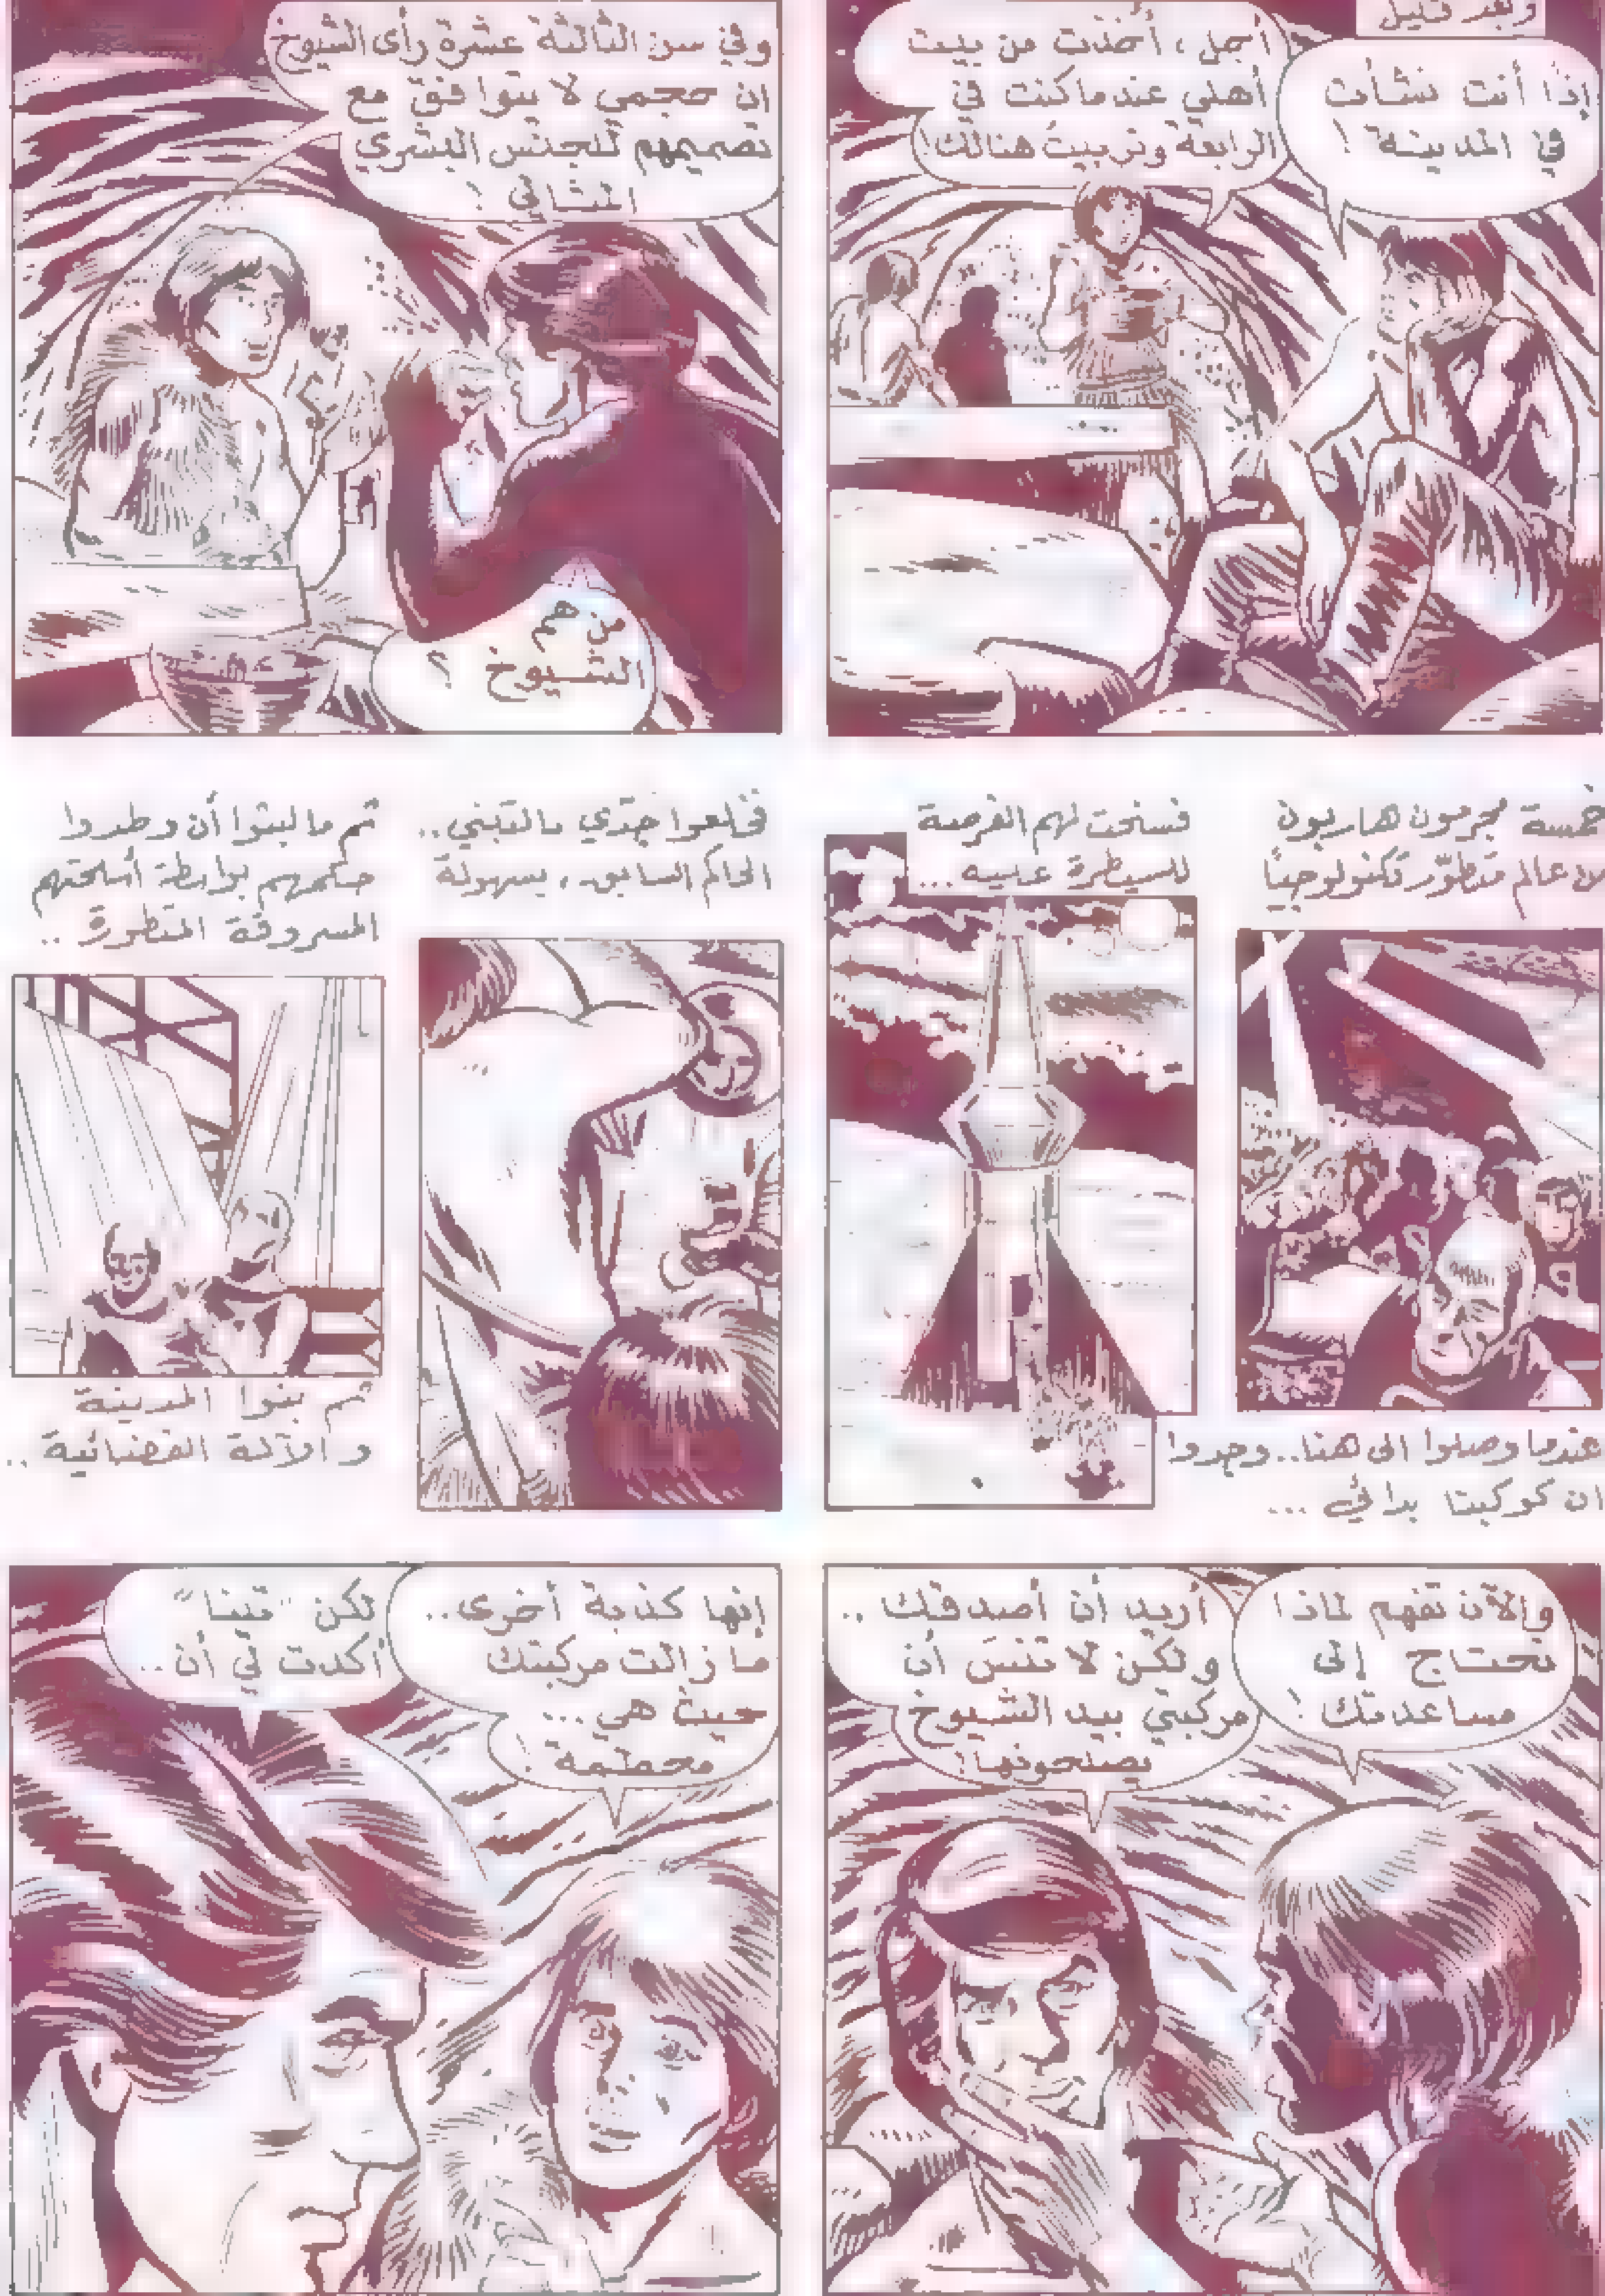 وبعد قليل
إذًا أنت نشأت
في المدينة !
أجل ، أُخذت من بيت
أهلي عندما كنت في
الرابعة وتربيتُ هنالك !
وفي سن الثالثة عشرة رأى الشيوخ
ان حجمي لا يتوافق مع
تصميمهم للجنس البشري
المثالي !
من هم
الشيوخ ؟
خمسة مجرمون هاربون
من عالم متطوّر تكنولوجيًا
عندما وصلوا الى هنا.. وجدوا
ان كوكبنا بدائي ...
فسنحت لهم الفرصة
للسيطرة عليه ...
فخلعوا جدّي بالتبني ..
الحاكم السابق ، بسهولة
ثم ما لبثوا أن وطدوا
حكمهم بواسطة أسلحتهم
المسروقة المتطورة ..
ثم بنوا المدينة
والآلة القضائية ..
والآن تفهم لماذا
نحتاج إلى
مساعدتك !
أريد أن أصدقك ..
ولكن لا تنسَ أن
مركبتي بيد الشيوخ
يصلحونها !
إنها كذبة أخرى ..
ما زالت مركبتك
حيث هي ...
محطمة !
لكن "تينا"
أكدت لي أن ..